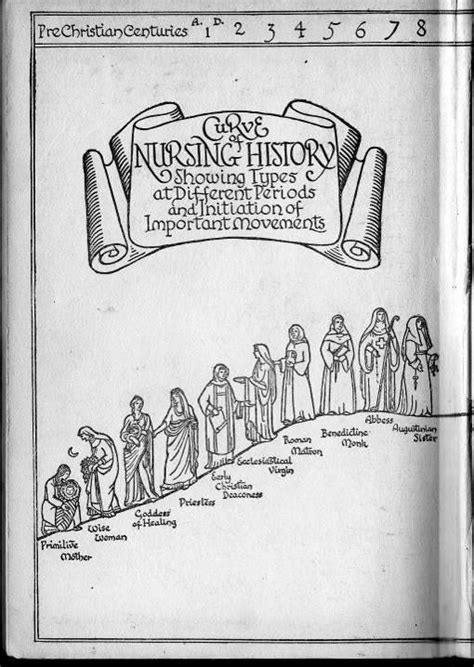 Pre Christian Centuries A.D. 1 2 3 4 5 6 7 8
CURVE
of
NURSING HISTORY
Showing Types
at Different Periods
and Initiation of
Important Movements
Primitive
Mother
Wise
Woman
Goddess
of Healing
Priestess
Early
Christian
Deaconess
Ecclesiastical
Virgin
Roman
Matron
Benedictine
Monk
Abbess
Augustinian
Sister